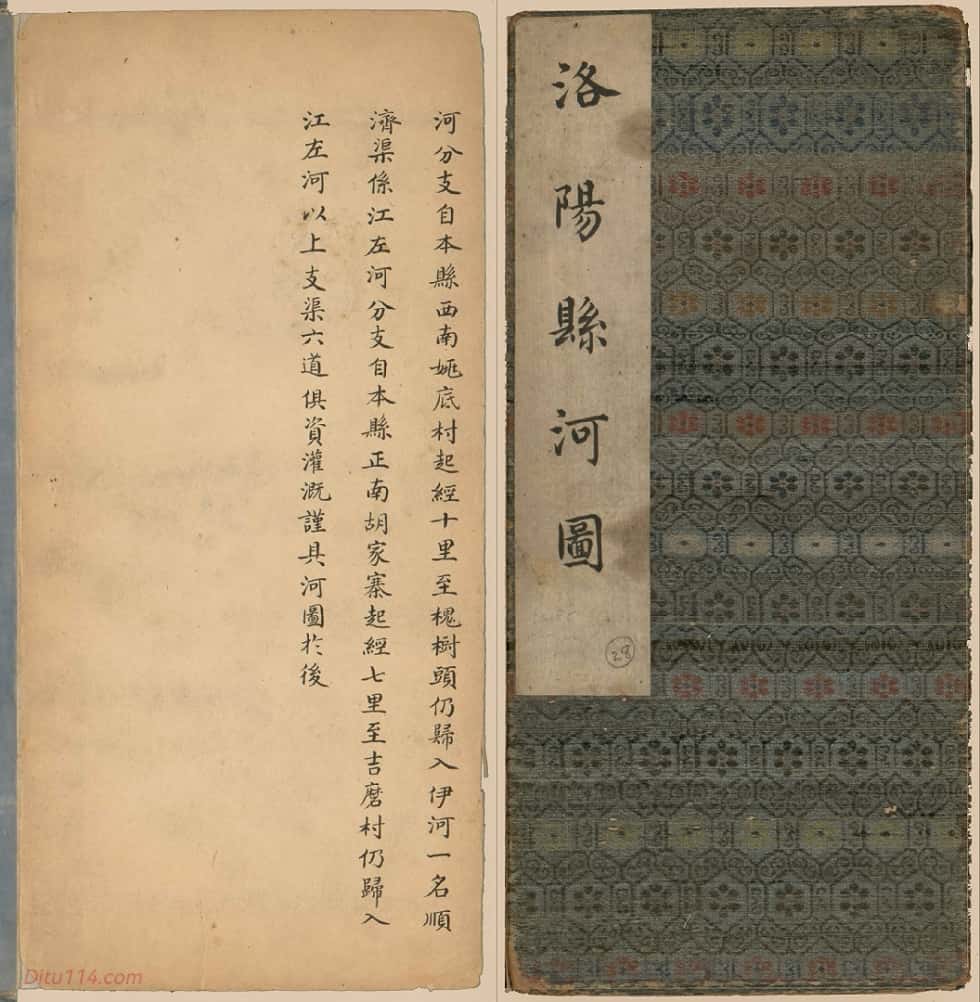 洛陽縣河圖
28
河分支自本縣西南姚底村起經十里至槐樹頭仍歸入伊河一名順
濟渠係江左河分支自本縣正南胡家寨起經七里至吉磨村仍歸入
江左河以上支渠六道俱資灌溉謹具河圖於後
Ditu114.com